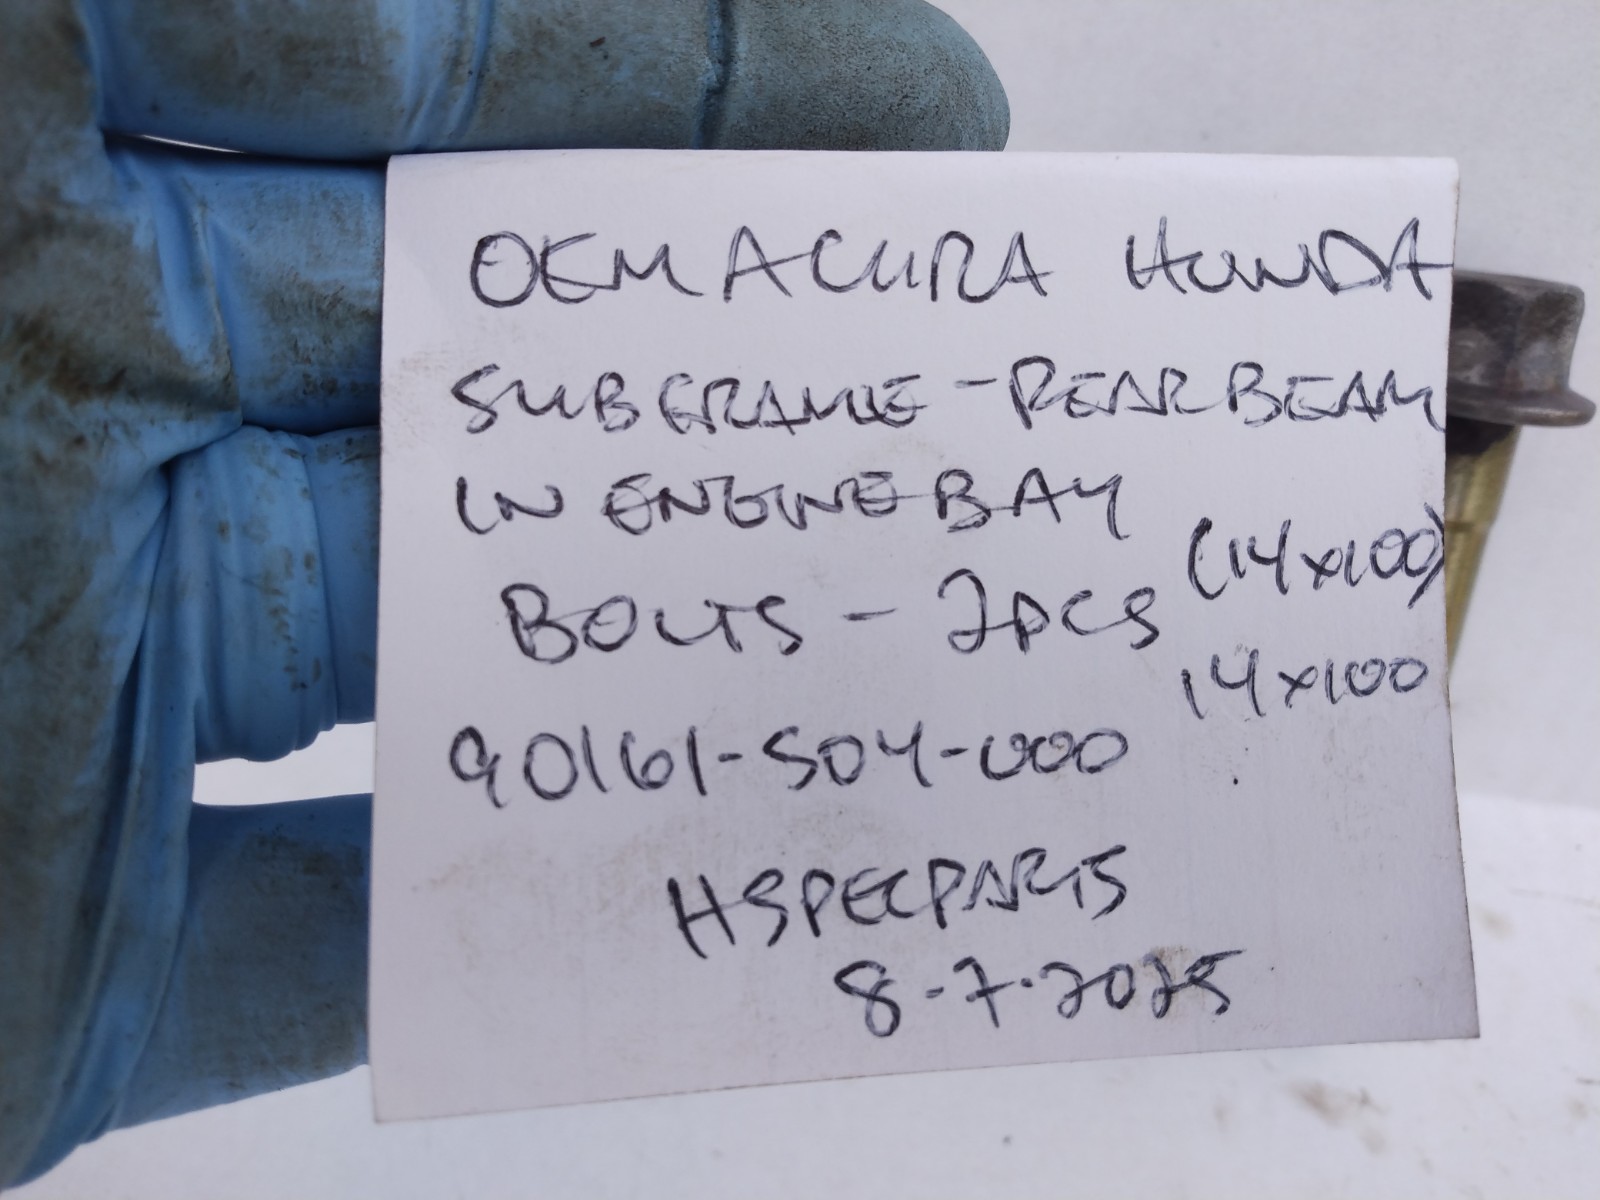 OEM ACURA HONDA
SUBFRAME - REAR BEAM
IN ENGINE BAY
BOLTS - 2PCS (14x100)
14x100
90161-S04-000
HSPECPARTS
8-7-2025